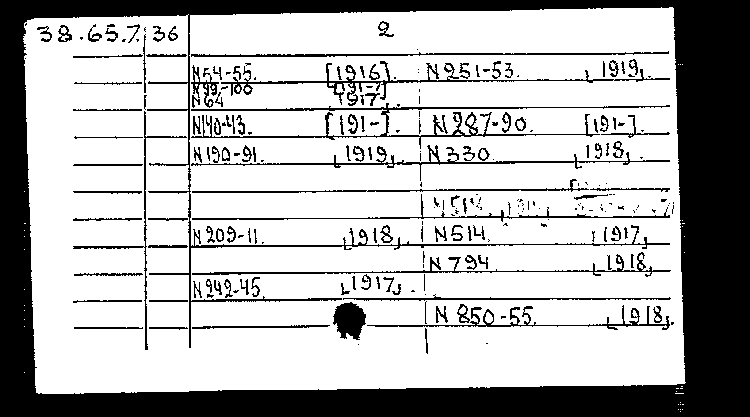 38.65.7. 36 2
N54-55. [1916]. N251-53. [1919]
N99-100 [191-?]
N64 1917
N140-43. [191-]. N287-90. [191-].
N190-91. [1919]. N330 [1918].
N514.
N209-11. [1918]. N514. [1917]
N794 [1918]
N242-45. [1917].
N850-55. [1918].